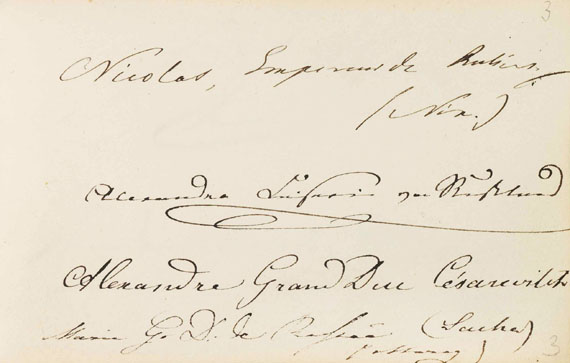 3
Nicolas, Empereur de Russie,
(Nix.)
Alexandra Kaiserin von Rußland
Alexandre Grand Duc Césarevitch
Marie G. D. de Russie (Sacha)
3